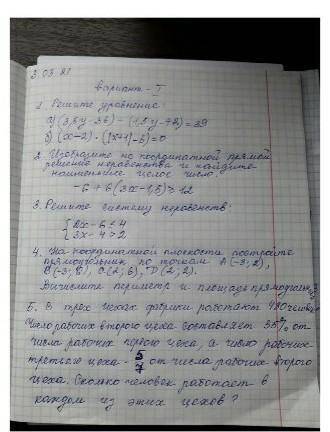 3.03.21
Вариант - I
1. Решите уравнение
а) (3,6y-36) - (1,5y+72)=39
б) (x-2)·(|x+1|-6)=0
2. Изобразите на координатной прямой
решение неравенства и найдите
наименьшее целое число.
-6+6(3x-1,5)≥12
3. Решите систему неравенств:
2x-6≤4
3x-4>2
4. На координатной плоскости постройте
прямоугольник по точкам A(-3;2),
B(-3;6), C(2;6), D(2;2).
Вычислите периметр и площадь прямоугольн.
5. В трех цехах фабрики работают 480 человек.
Число рабочих второго цеха составляет 35% от
числа рабочих первого цеха, а число рабочих
третьего цеха - 5/7 от числа рабочих второго
цеха. Сколько человек работает в
каждом из этих цехов?